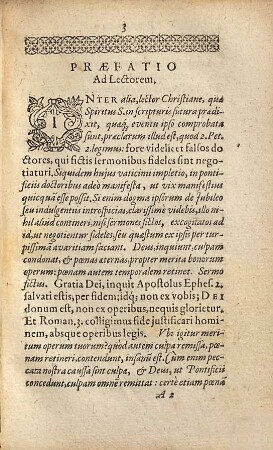 3
PRÆFATIO
Ad Lectorem.
INTER alia, lector Christiane, quæ
Spiritus S. in scripturis futura prædi-
xit, quæq́, eventu ipso comprobata
sunt, præclarum illud est, quod 2. Pet.
2. legimus: fore videlicet falsos do-
ctores, qui fictis sermonibus fideles sint nego-
tiaturi. Siquidem hujus vaticinii impletio, in pon-
tificiis doctoribus adeò manifesta, ut vix manifestius
quicquã esse possit. Si enim dogma ipsorum de jubileo
seu indulgentiis introspicias, clarissimè videbis, illo ni-
hil aliud contineri, nisi sermones fictos, excogitatos ad
id, ut negotientur fideles, seu quæstum ex ipsis per tur-
pissimã avaritiam faciant. Deus, inquiunt, culpam
condonat, & pœnas æternas, propter merita bonorum
operum: pœnam autem temporalem retinet. Sermo
fictus. Gratia Dei, inquit Apostolus Ephes. 2.
salvati estis, per fidem; idq́; non ex vobis; DEI
donum est, non ex operibus, nequis glorietur.
Et Roman. 3. colligimus fide justificari homi-
nem, absque operibus legis. Ubi igitur meri-
tum operum tuorum? quòd autem culpa remissa, pœ-
nam retineri contendunt, insanũ est. Cùm enim pec-
cata nostra caussa sint culpæ, & Deus, ut Pontificii
concedunt, culpam omnē remittat: certè etiam pœnā
A 2